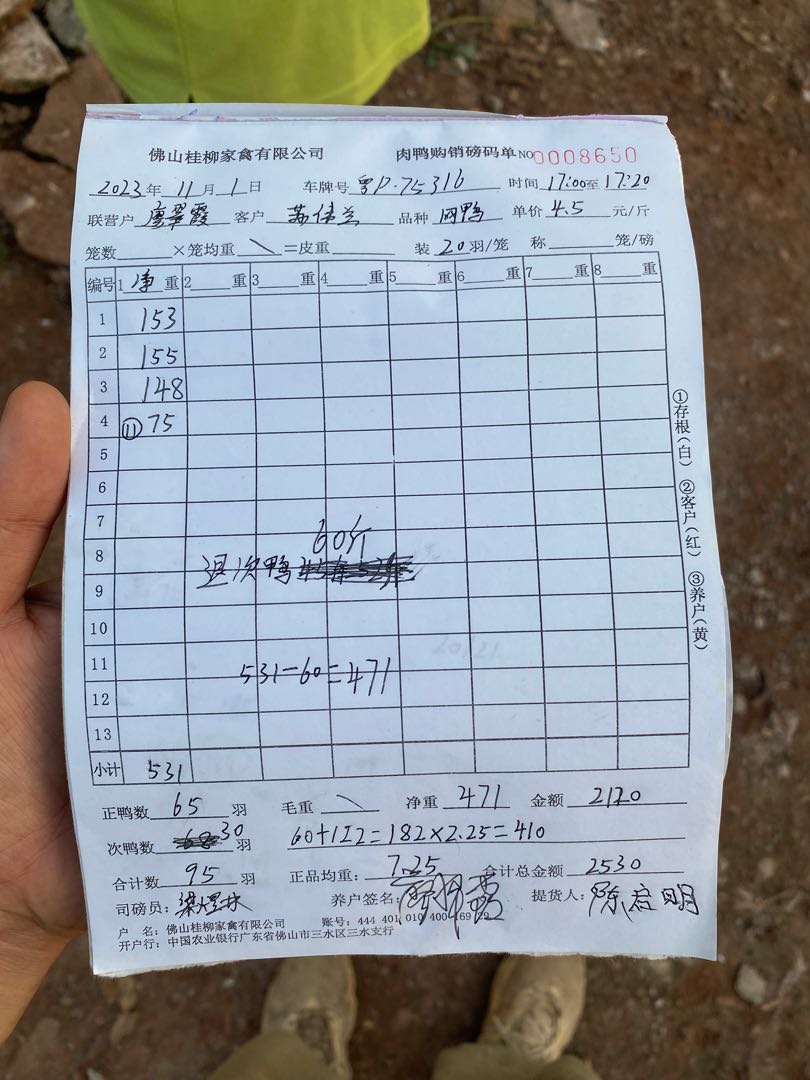 佛山桂柳家禽有限公司 肉鸭购销磅码单 NO 0008650
2023年 11月 1日 车牌号 粤P·75316 时间 17:00至17:20
联营户 廖翠霞 客户 苏伟兰 品种 网鸭 单价 4.5 元/斤
笼数 ×笼均重 \ =皮重 装 20 羽/笼 称 笼/磅
编号 1 净 重 2 重 3 重 4 重 5 重 6 重 7 重 8 重
1 153
2 155
3 148
4 ⑪ 75
5
6
7
60斤
8
退次鸭
9
10
11
531-60=471
12
13
小计 531
①存根(白) ②客户(红) ③养户(黄)
正鸭数 65 羽 毛重 \ 净重 471 金额 2120
次鸭数 30 羽 60+122=182×2.25=410
合计数 95 羽 正品均重: 7.25 合计总金额 2530
司磅员: 养户签名: 提货人: 陈启明
户 名: 佛山桂柳家禽有限公司 账号: 444 401 010 400
开户行: 中国农业银行广东省佛山市三水区三水支行